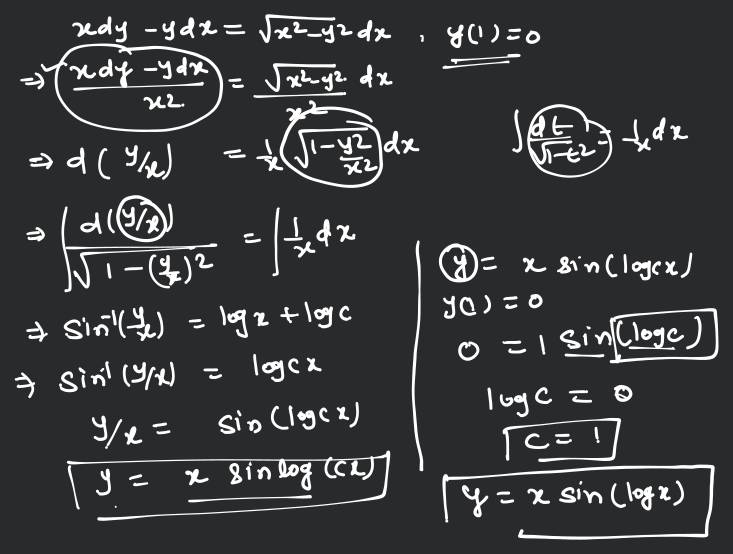 xdy - ydx = √x²-y² dx , y(1) = 0
⇒ xdy - ydx / x² = √x²-y² / x² dx
⇒ d(y/x) = 1/x √1 - y²/x² dx
∫ dt / √1-t² = 1/x dx
⇒ ∫ d(y/x) / √1-(y/x)² = ∫ 1/x dx
⇒ sin⁻¹(y/x) = log x + log c
⇒ sin⁻¹(y/x) = log cx
y/x = sin(log cx)
y = x sin log (cx)
y = x sin(log cx)
y(1) = 0
0 = 1 sin(log c)
log c = 0
c = 1
y = x sin(log x)